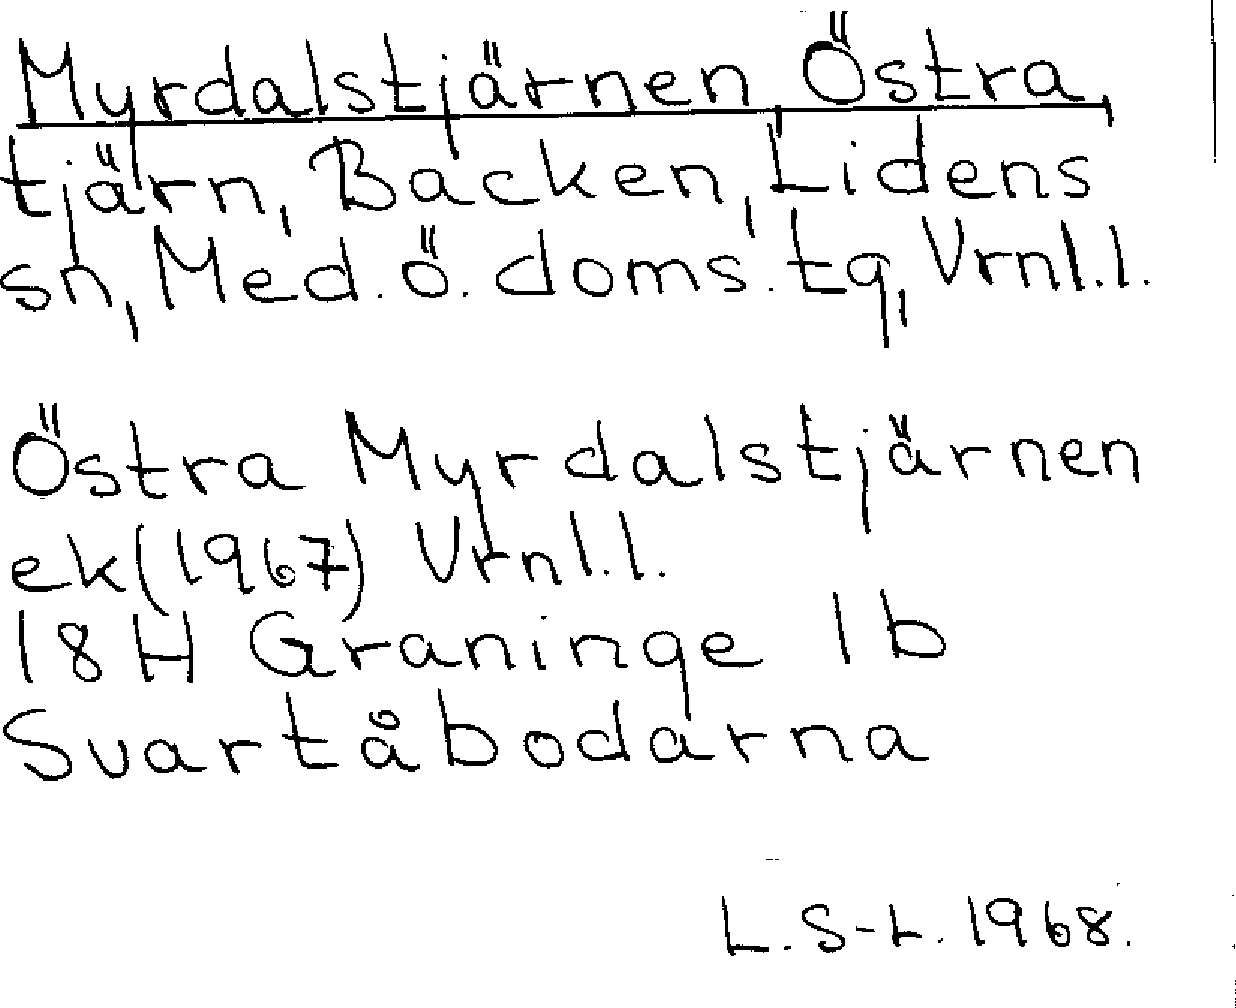 Myrdalstjärnen, Östra,
tjärn, Backen, Lidens
sn, Med. ö. doms. tg, Vrnl.l.
Östra Myrdalstjärnen
ek (1967) Vrnl.l.
18H Graninge 1b
Svartåbodarna
L. S-L. 1968.